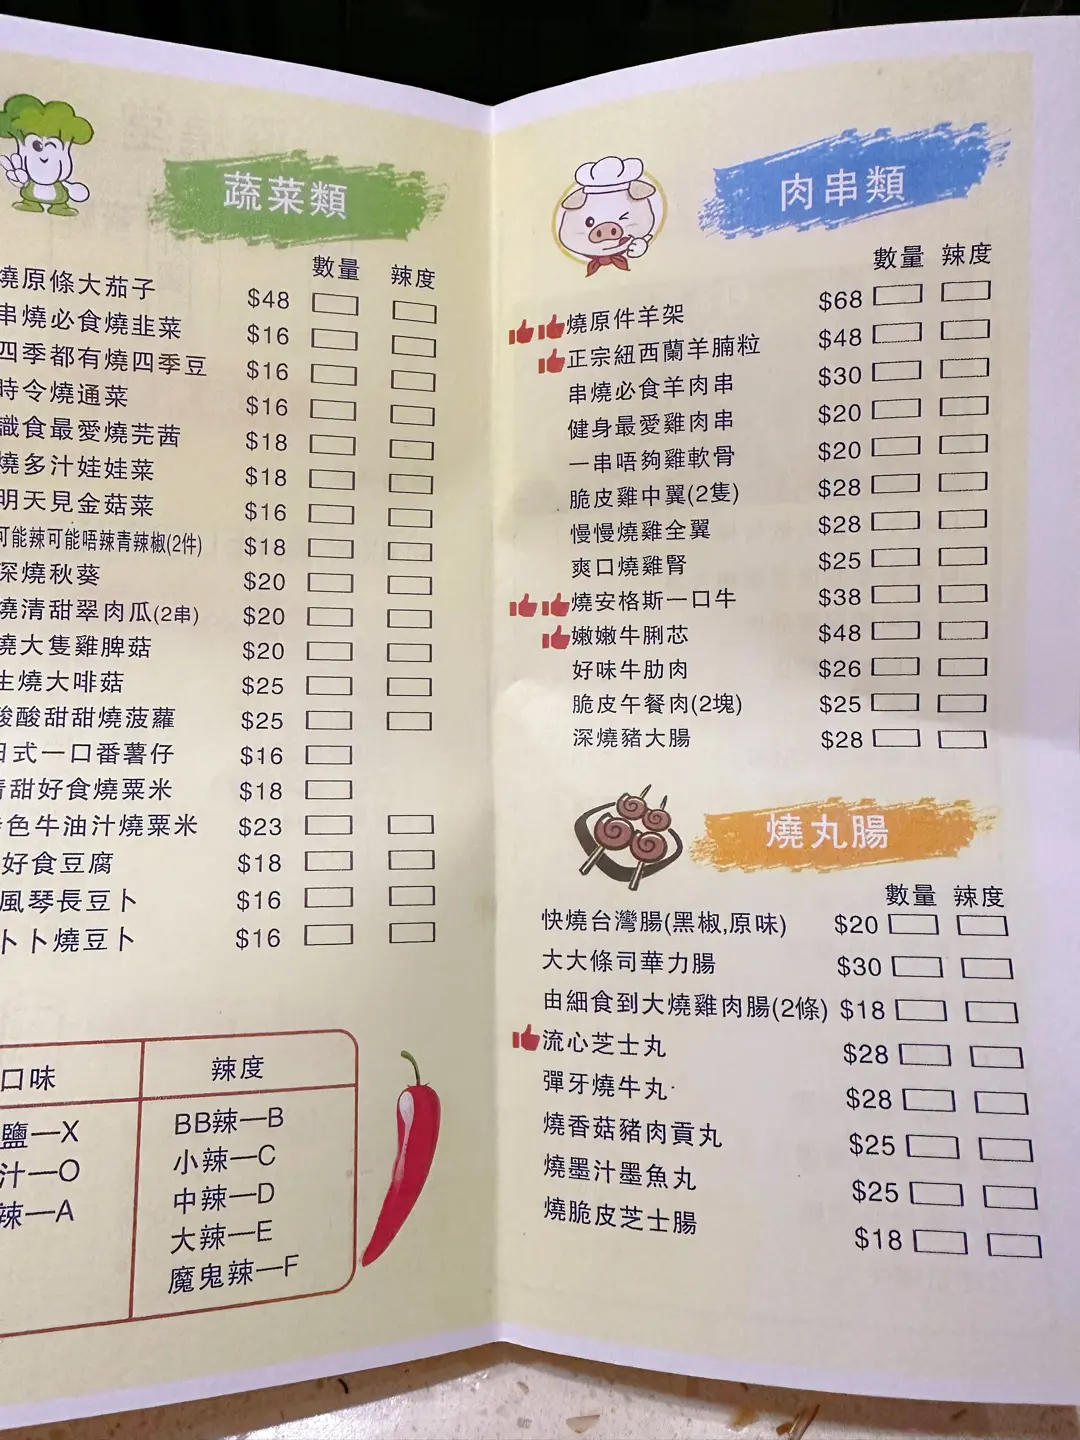 蔬菜類
數量 辣度
燒原條大茄子 $48
串燒必食燒韭菜 $16
四季都有燒四季豆 $16
時令燒通菜 $16
識食最愛燒芫茜 $18
燒多汁娃娃菜 $18
明天見金菇菜 $16
可能辣可能唔辣青辣椒(2件) $18
深燒秋葵 $20
燒清甜翠肉瓜(2串) $20
燒大隻雞脾菇 $20
生燒大啡菇 $25
酸酸甜甜燒菠蘿 $25
日式一口番薯仔 $16
清甜好食燒粟米 $18
色牛油汁燒粟米 $23
好食豆腐 $18
風琴長豆卜 $16
卜卜燒豆卜 $16
口味 辣度
鹽—X BB辣—B
汁—O 小辣—C
辣—A 中辣—D
大辣—E
魔鬼辣—F
肉串類
數量 辣度
燒原件羊架 $68
正宗紐西蘭羊腩粒 $48
串燒必食羊肉串 $30
健身最愛雞肉串 $20
一串唔夠雞軟骨 $20
脆皮雞中翼(2隻) $28
慢慢燒雞全翼 $28
爽口燒雞腎 $25
燒安格斯一口牛 $38
嫩嫩牛脷芯 $48
好味牛肋肉 $26
脆皮午餐肉(2塊) $25
深燒豬大腸 $28
燒丸腸
數量 辣度
快燒台灣腸(黑椒,原味) $20
大大條司華力腸 $30
由細食到大燒雞肉腸(2條) $18
流心芝士丸 $28
彈牙燒牛丸 $28
燒香菇豬肉貢丸 $25
燒墨汁墨魚丸 $25
燒脆皮芝士腸 $18